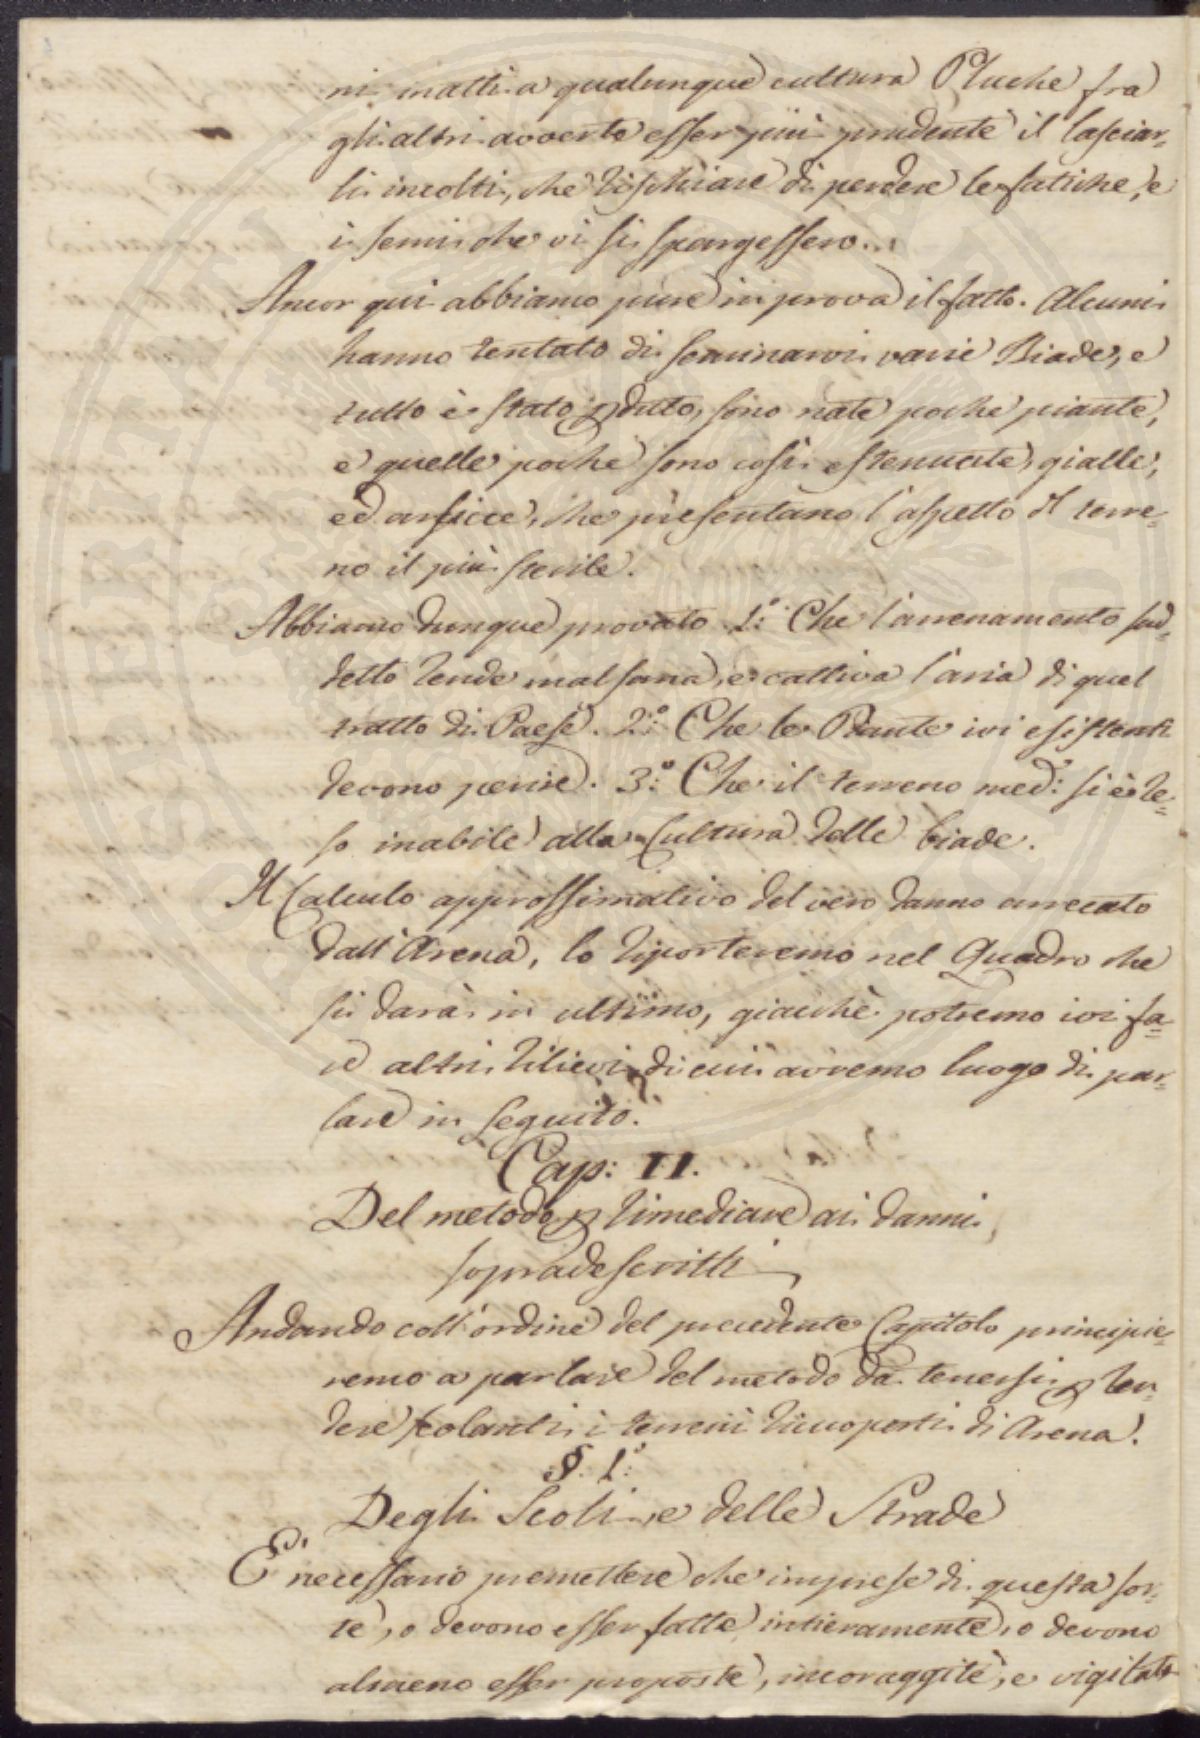 ni inatti a qualunque cultura Pluche fra
gli altri avverte esser più prudente il lasciar=
li incolti, che rischiare di perdere le fatiche, e
i semi che vi si spargessero.
Ancor qui abbiamo pure in prova il fatto. Alcuni
hanno tentato di seminarvi varie Biade, e
tutto è stato pduto, sono nate poche piante,
e quelle poche sono così estenuate, gialle,
ed arsicce, che presentano l'aspetto d'l terre=
no il più sterile.
Abbiamo dunque provato 1:° Che l'arrenamento sud=
detto rende malsana, e cattiva l'aria di quel
tratto di Paese. 2:° Che le Piante ivi esistenti
devono perire. 3:° Che il terreno med:° si è re=
so inabile alla Cultura delle biade.
Il Calculo approssimativo del vero danno arrecato
dall'Arena, lo riporteremo nel Quadro che
si darà in ultimo, giacchè potremo ivi fa=
re altri rilievi di cui avremo luogo di par=
lare in seguito.
Cap: II.
Del metodo p rimediare ai danni
sopradescritti
Andando coll'ordine del precedente Capitolo principie=
remo a parlare del metodo da tenersi p ren=
dere scolanti i terreni ricuoperti di Arena.
§. 1:°
Degli Scoli, e delle Strade
E' necessario premettere che imprese di questa sor=
te, o devono esser fatte intieramente, o devono
almeno esser proposte, incoraggite, e vigilate